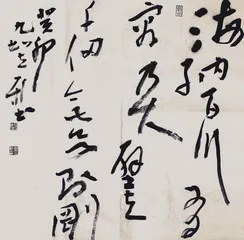 海納百川有
容乃大壁立
千仞無欲則剛
癸卯